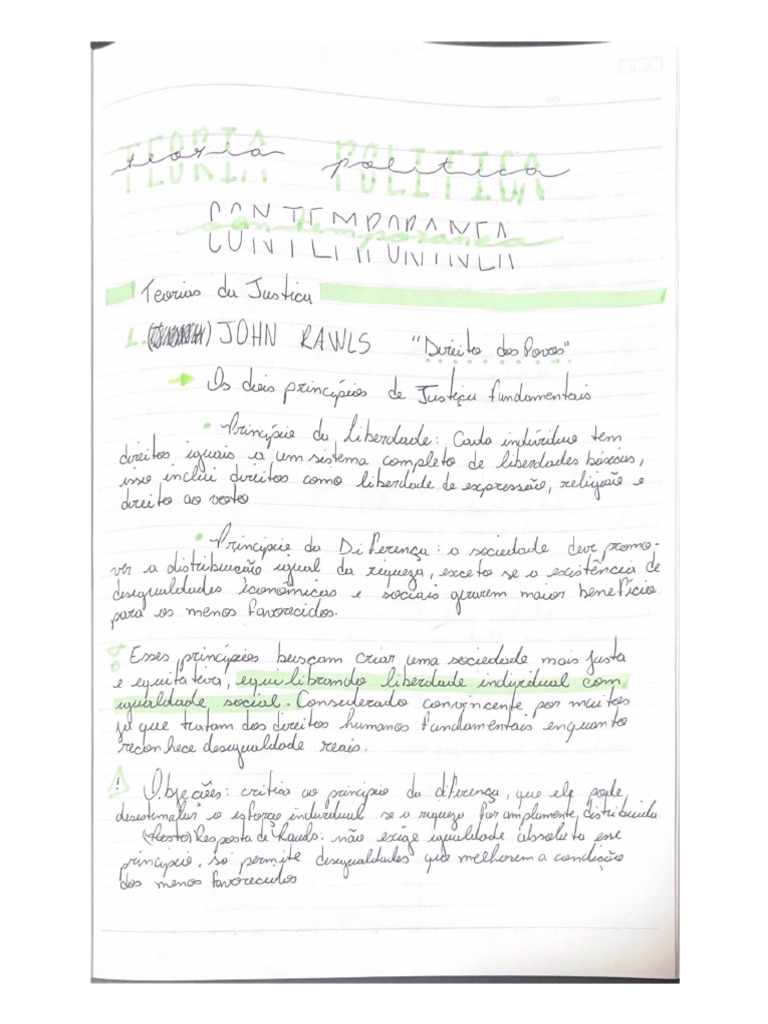 TEORIA POLITICA
teoria politica
CONTEMPORANEA
contemporanea
Teorias da Justiça
1. JOHN RAWLS "Direito dos Povos"
→ Os dois princípios de Justiça fundamentais
• Princípio da Liberdade: Cada indivíduo tem
direitos iguais a um sistema completo de liberdades básicas,
isso inclui direitos como liberdade de expressão, religião e
direito ao voto
• Princípio da Diferença: a sociedade deve promo-
ver a distribuição igual da riqueza, exceto se a existência de
desigualdades econômicas e sociais gerarem maior benefício
para os menos favorecidos.
Esses princípios buscam criar uma sociedade mais justa
e equitativa, equilibrando liberdade individual com
igualdade social. Considerado convincente por muitos
já que tratam dos direitos humanos fundamentais enquanto
reconhece desigualdade reais.
! Objeções: critias ao princípio da diferença, que ele pode
desestimular o esforço individual se a riqueza for amplamente distribuida
Resposta de Rawls: não exige igualdade absoluta esse
princípio, só permite desigualdades que melhorem a condição
dos menos favorecidos